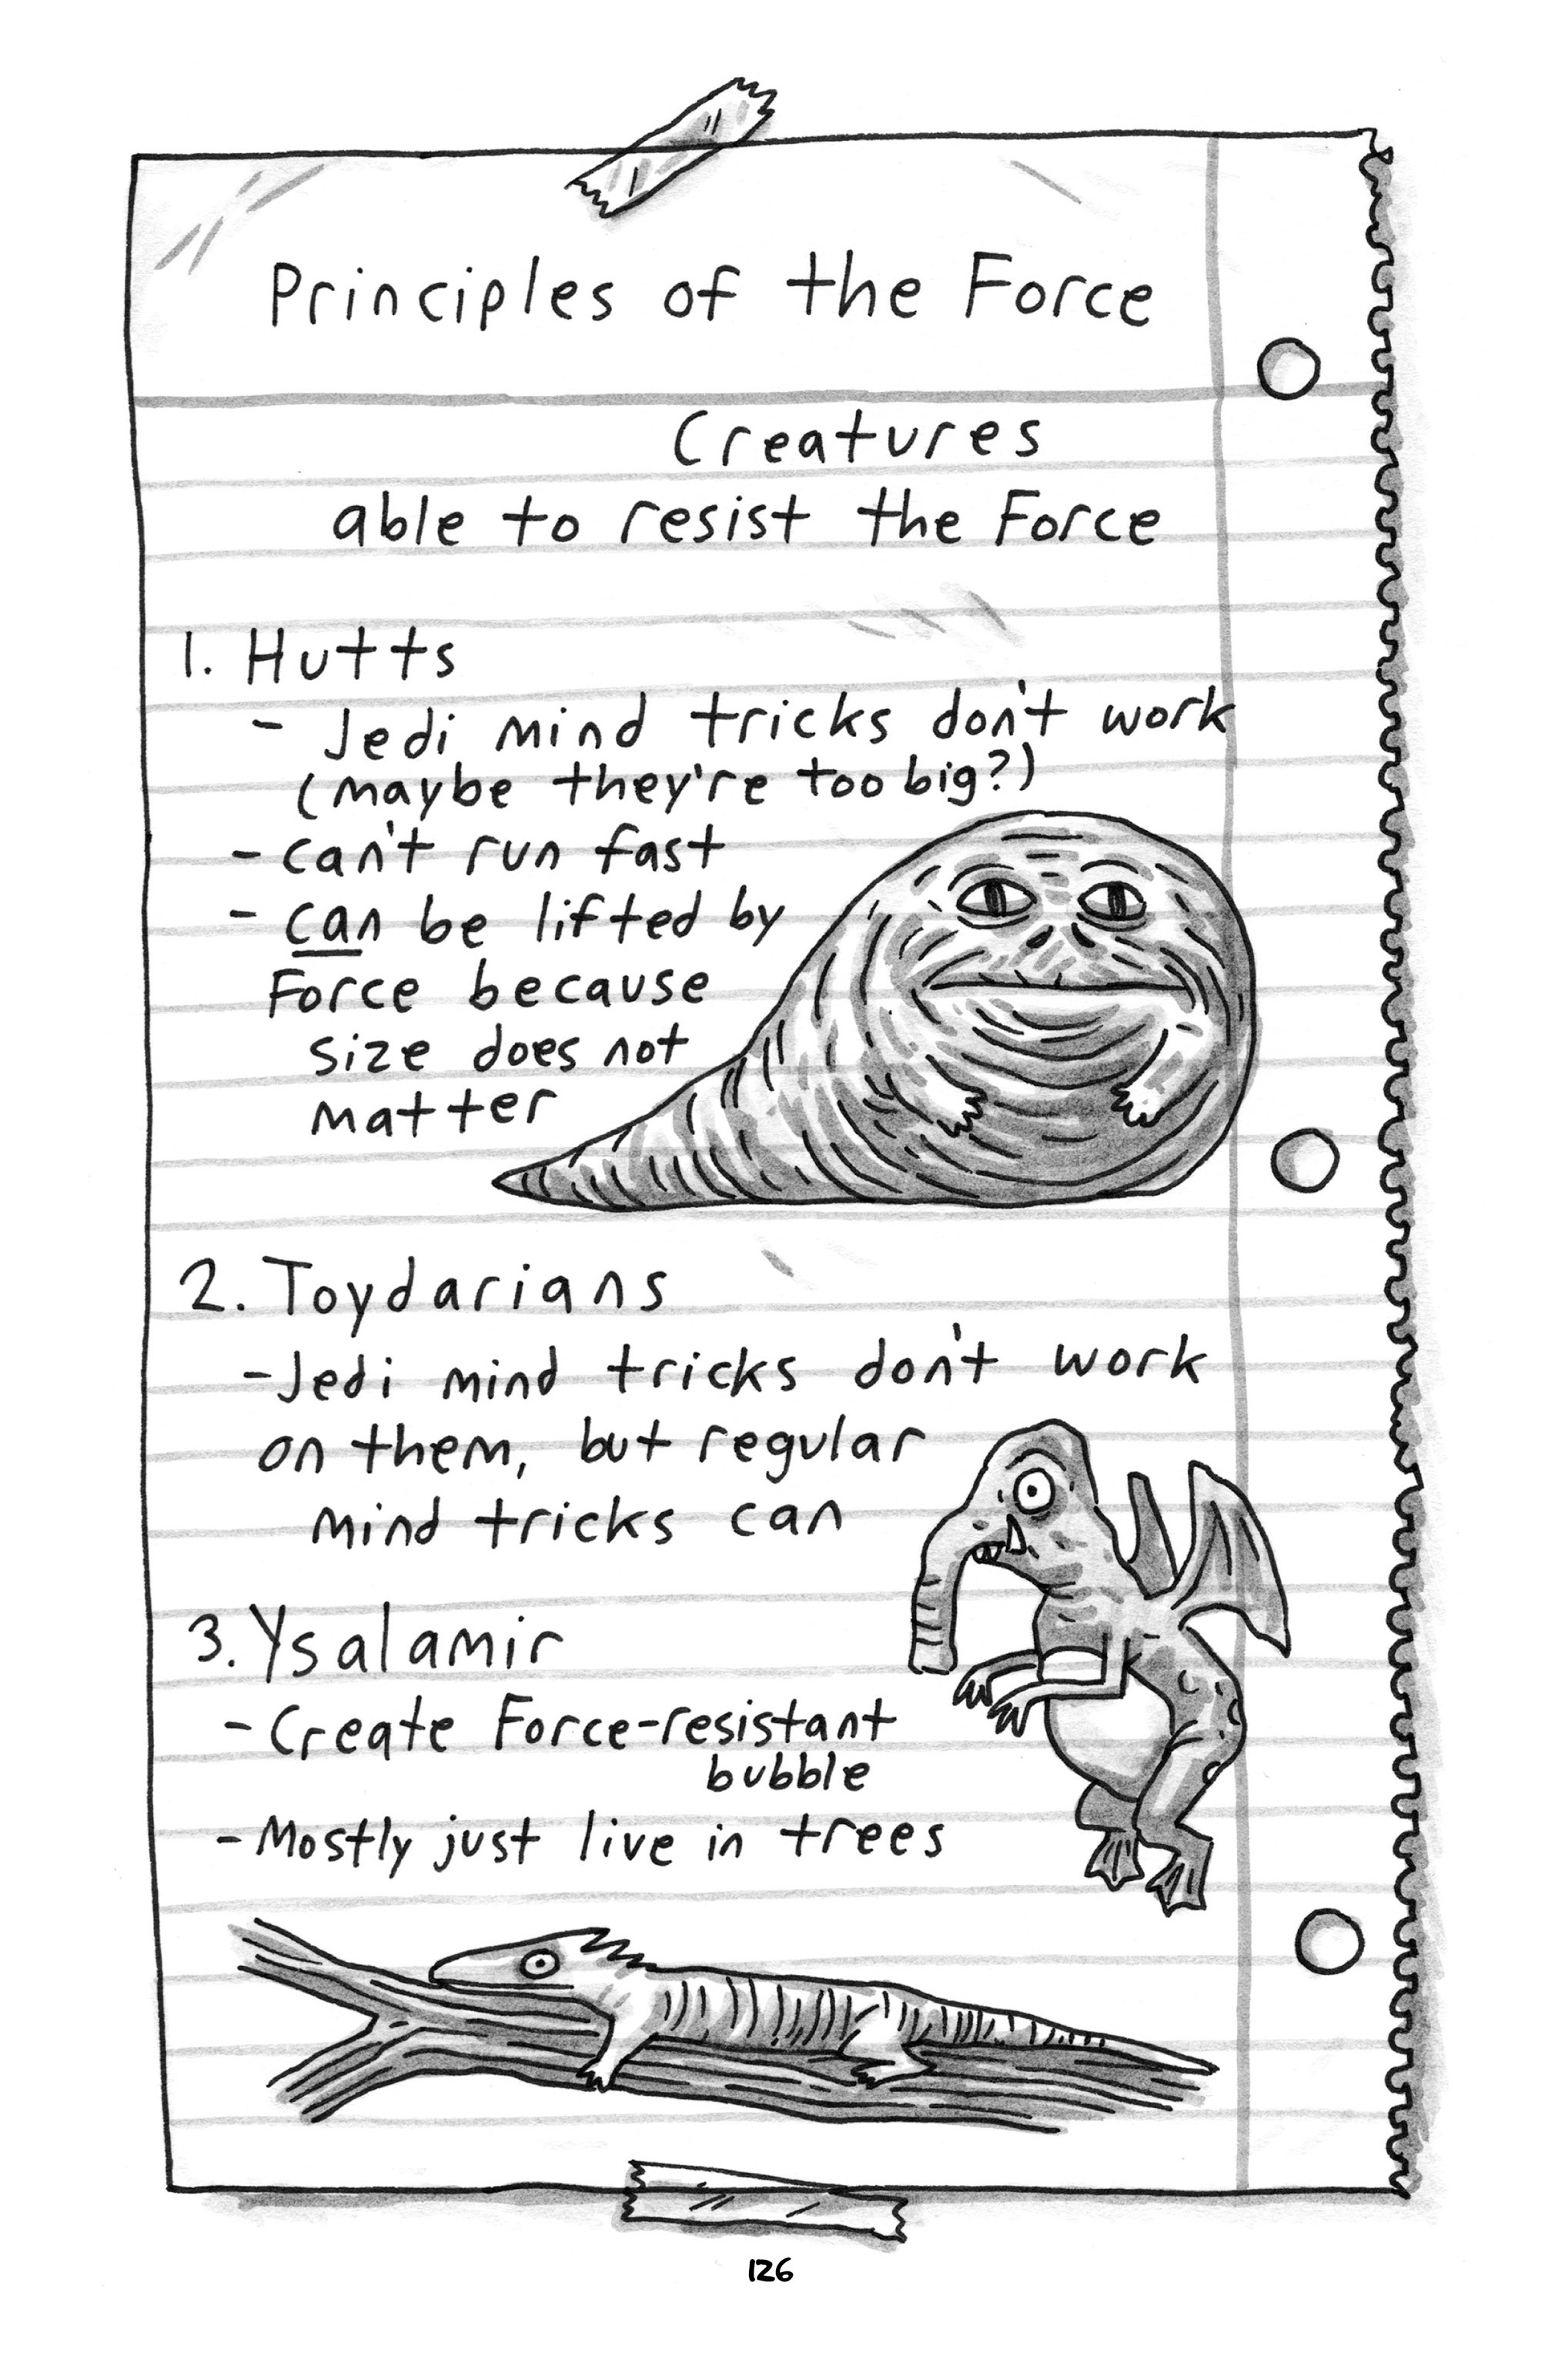 Principles of the Force
Creatures
able to resist the Force
1. Hutts
- Jedi mind tricks don't work
(maybe they're too big?)
- can't run fast
- can be lifted by
Force because
size does not
matter
2. Toydarians
- Jedi mind tricks don't work
on them, but regular
mind tricks can
3. Ysalamir
- Create Force-resistant
bubble
- Mostly just live in trees
126